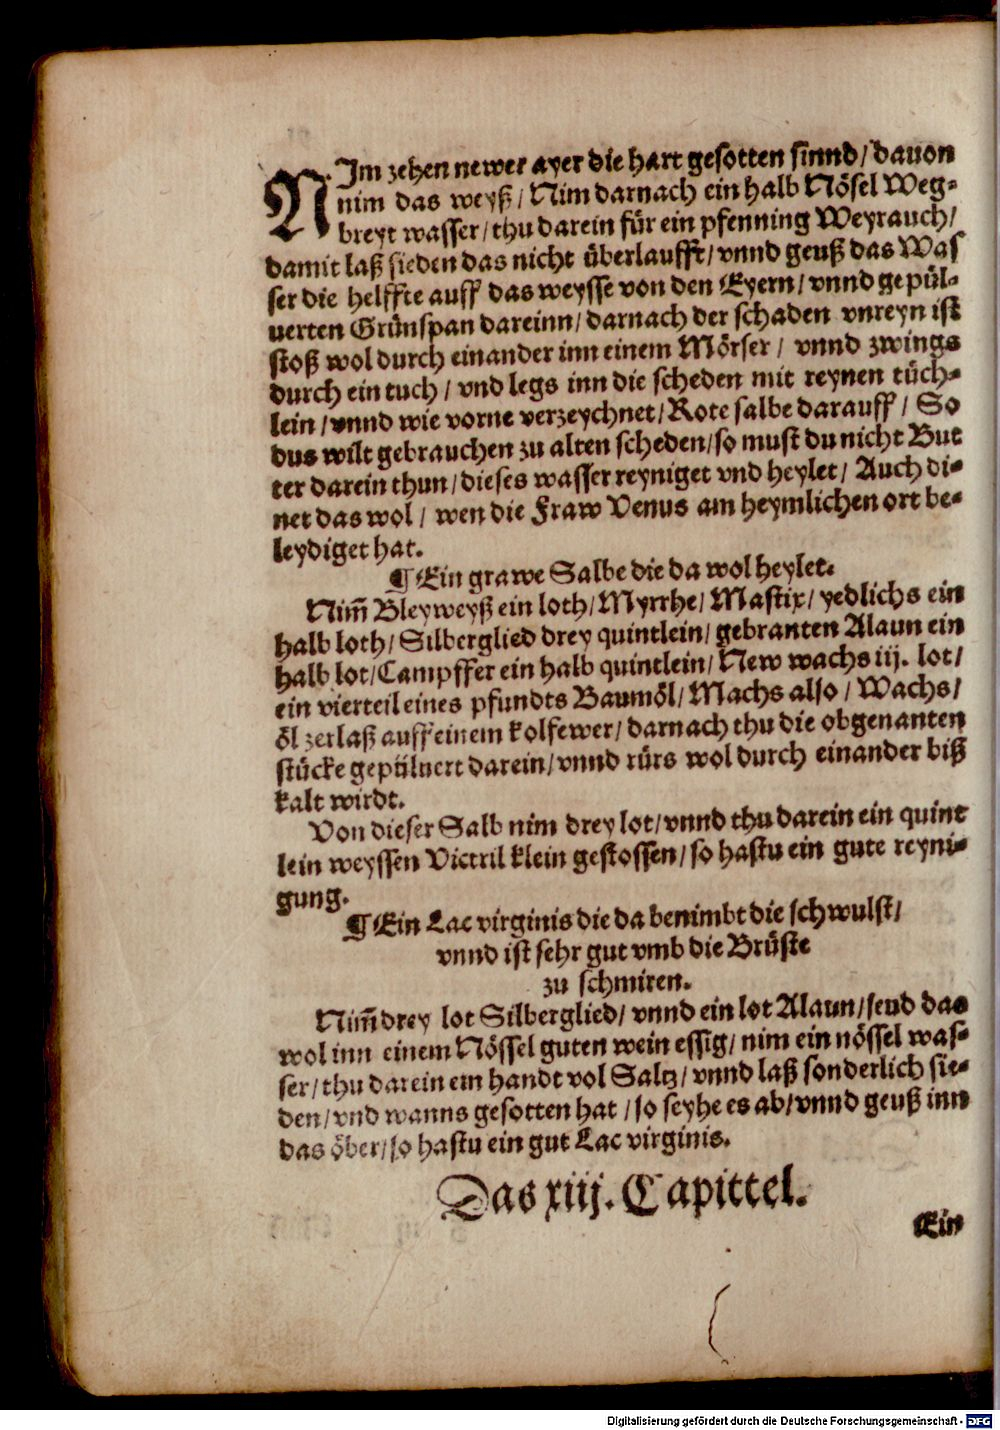 NIm zehen newer ayer die hart gesotten sinnd/ dauon
nim das weyß/ Nim darnach ein halb Nösel Weg-
breyt wasser/ thu darein für ein pfenning Weyrauch/
damit laß sieden das nicht überlaufft/ vnnd geuß das Was
ser die helffte auff das weysse von den Eyern/ vnnd gepül-
uerten Grünspan dareinn/ darnach der schaden vnreyn ist
stoß wol durch einander inn einem Mörser/ vnnd zwings
durch ein tuch/ vnd legs inn die scheden mit reynen tüch-
lein/ vnnd wie vorne verzeychnet/ Rote salbe darauff/ So
dus wilt gebrauchen zu alten scheden/ so must du nicht But
ter darein thun/ dieses wasser reyniget vnd heylet/ Auch di-
net das wol/ wen die Fraw Venus am heymlichen ort be-
leydiget hat.
¶ Ein grawe Salbe die da wol heylet.
Nim̃ Bleyweyß ein loth/ Myrrhe/ Mastix/ yedlichs ein
halb loth/ Silberglied drey quintlein/ gebranten Alaun ein
halb lot/ Campffer ein halb quintlein/ New wachs iij. lot/
ein vierteil eines pfundts Baumöl/ Machs also/ Wachs/
öl zerlaß auff einem kolfewer/ darnach thu die obgenanten
stücke gepüluert darein/ vnnd rürs wol durch einander biß
kalt wirdt.
Von dieser Salb nim drey lot/ vnnd thu darein ein quint
lein weyssen Victril klein gestossen/ so hastu ein gute reyni-
gung.
¶ Ein Lac virginis die da benimbt die schwulst/
vnnd ist sehr gut vmb die Brüste
zu schmiren.
Nim̃ drey lot Silberglied/ vnnd ein lot Alaun/ seud das
wol inn einem Nössel guten wein essig/ nim ein nössel was-
ser/ thu darein ein handt vol Saltz/ vnnd laß sonderlich sie-
den/ vnd wanns gesotten hat/ so seyhe es ab/ vnnd geuß inn
das öber/ so hastu ein gut Lac virginis.
Das xiij. Capittel.
Ein
Digitalisierung gefördert durch die Deutsche Forschungsgemeinschaft - DFG